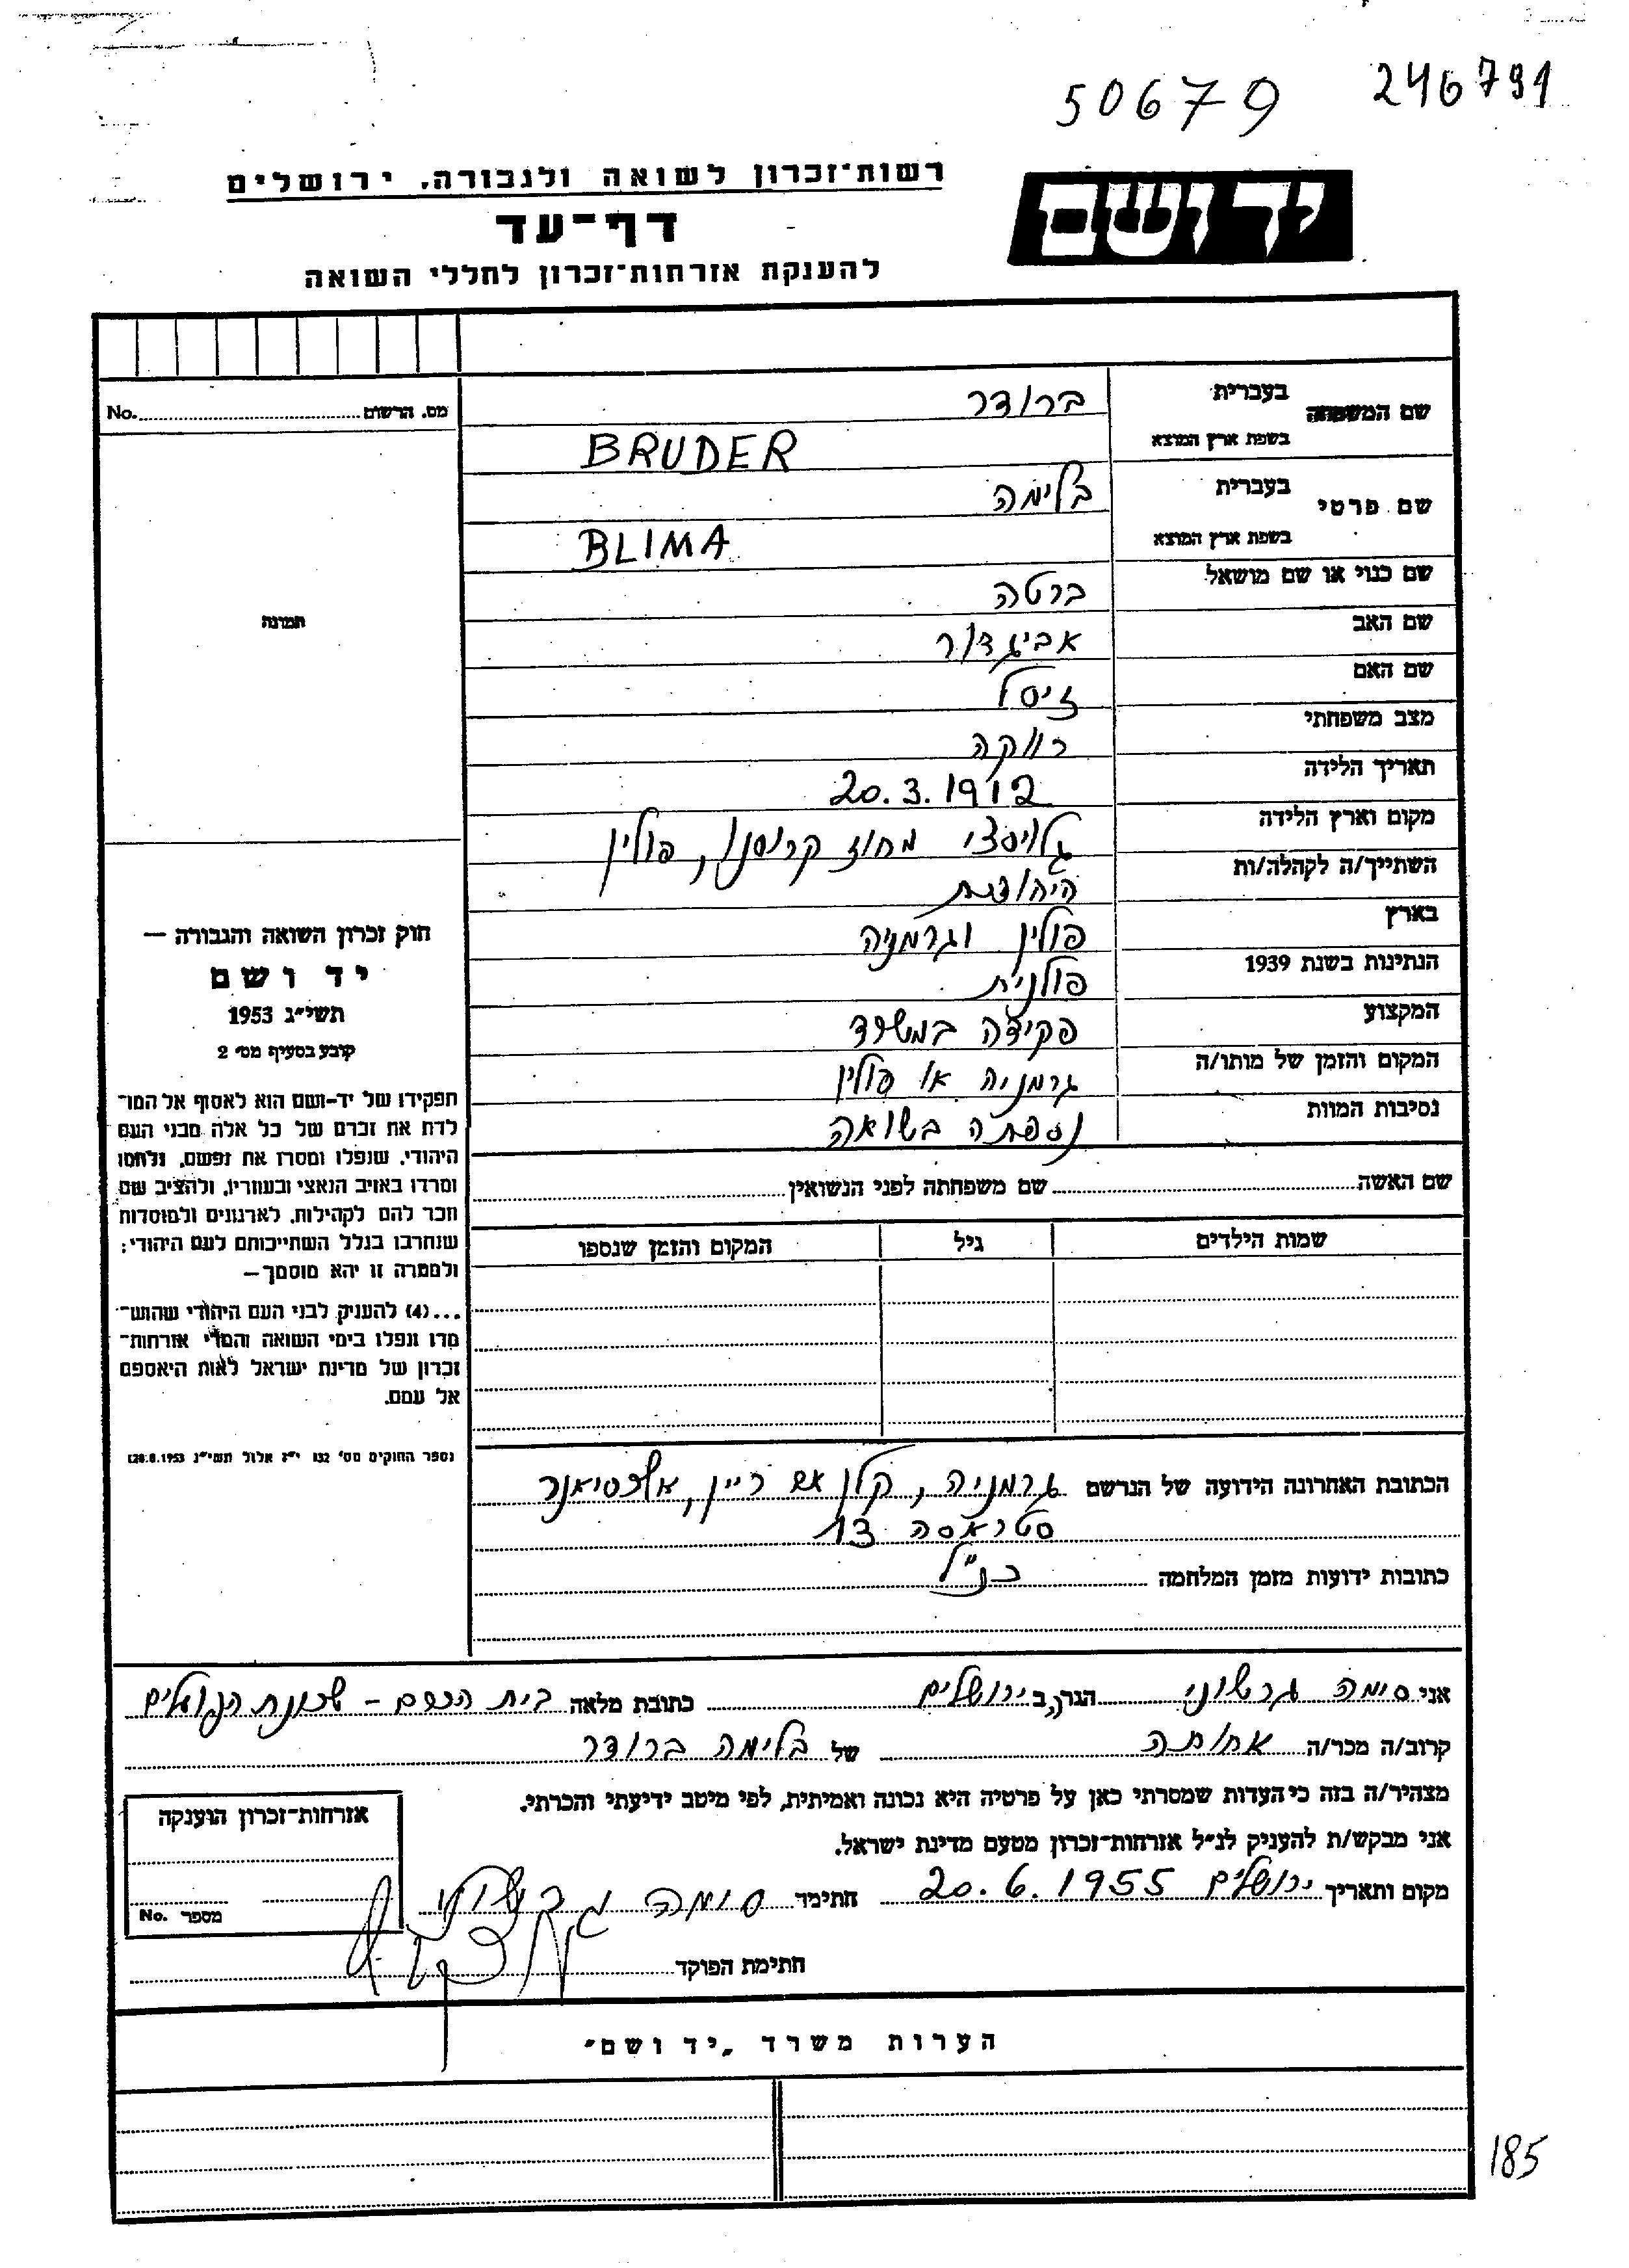 50679 246791
יד ושם
רשות־זכרון לשואה ולגבורה, ירושלים
דף־עד
להענקת אזרחות־זכרון לחללי השואה
מס. הרשום No.
שם המשפחה בעברית ברודר
בשפת ארץ המוצא BRUDER
שם פרטי בעברית בלימה
בשפת ארץ המוצא BLIMA
שם כנוי או שם מושאל ברטה
שם האב אביגדור
שם האם זיסל
מצב משפחתי רווקה
תאריך הלידה 20.3.1912
מקום וארץ הלידה מחוז קרוסנו, פולין
השתייך/ה לקהלה/ות היהודית
בארץ פולין וגרמניה
הנתינות בשנת 1939 פולנית
המקצוע פקידה במשרד
המקום והזמן של מותו/ה גרמניה או פולין
נסיבות המוות נספתה בשואה
תמונה
חוק זכרון השואה והגבורה —
יד ושם
תשי"ג 1953
קובע בסעיף מס' 2
תפקידו של יד-ושם הוא לאסוף אל המו־
לדת את זכרם של כל אלה מבני העם
היהודי, שנפלו ומסרו את נפשם, נלחמו
ומרדו באויב הנאצי ובעוזריו, ולהציב שם
וזכר להם לקהילות, לארגונים ולמוסדות
שנחרבו בגלל השתייכותם לעם היהודי;
ולמטרה זו יהא מוסמך—
...(4) להעניק לבני העם היהודי שהוש־
מדו ונפלו בימי השואה והמרי אזרחות־
זכרון של מדינת ישראל לאות היאספם
אל עמם.
(ספר החוקים מס' 132 י"ז אלול תשי"ג 28.8.1953)
שם האשה שם משפחתה לפני הנשואין
שמות הילדים גיל המקום והזמן שנספו
הכתובת האחרונה הידועה של הנרשם גרמניה, קלן אם ריין, אלכסיאנר
סטראסה 13
כתובות ידועות מזמן המלחמה כנ"ל
אני סימה גרשוני הגר/ה ב ירושלים כתובת מלאה בית הכרם - שכונת הפועלים
קרוב/ה מכר/ה אחותה של בלימה ברודר
מצהיר/ה בזה כי העדות שמסרתי כאן על פרטיה היא נכונה ואמיתית, לפי מיטב ידיעתי והכרתי.
אני מבקש/ת להעניק לנ"ל אזרחות־זכרון מטעם מדינת ישראל.
מקום ותאריך ירושלים 20.6.1955 חתימה סימה גרשוני
חתימת הפוקד
אזרחות־זכרון הוענקה
מספר No.
הערות משרד „יד ושם"
185